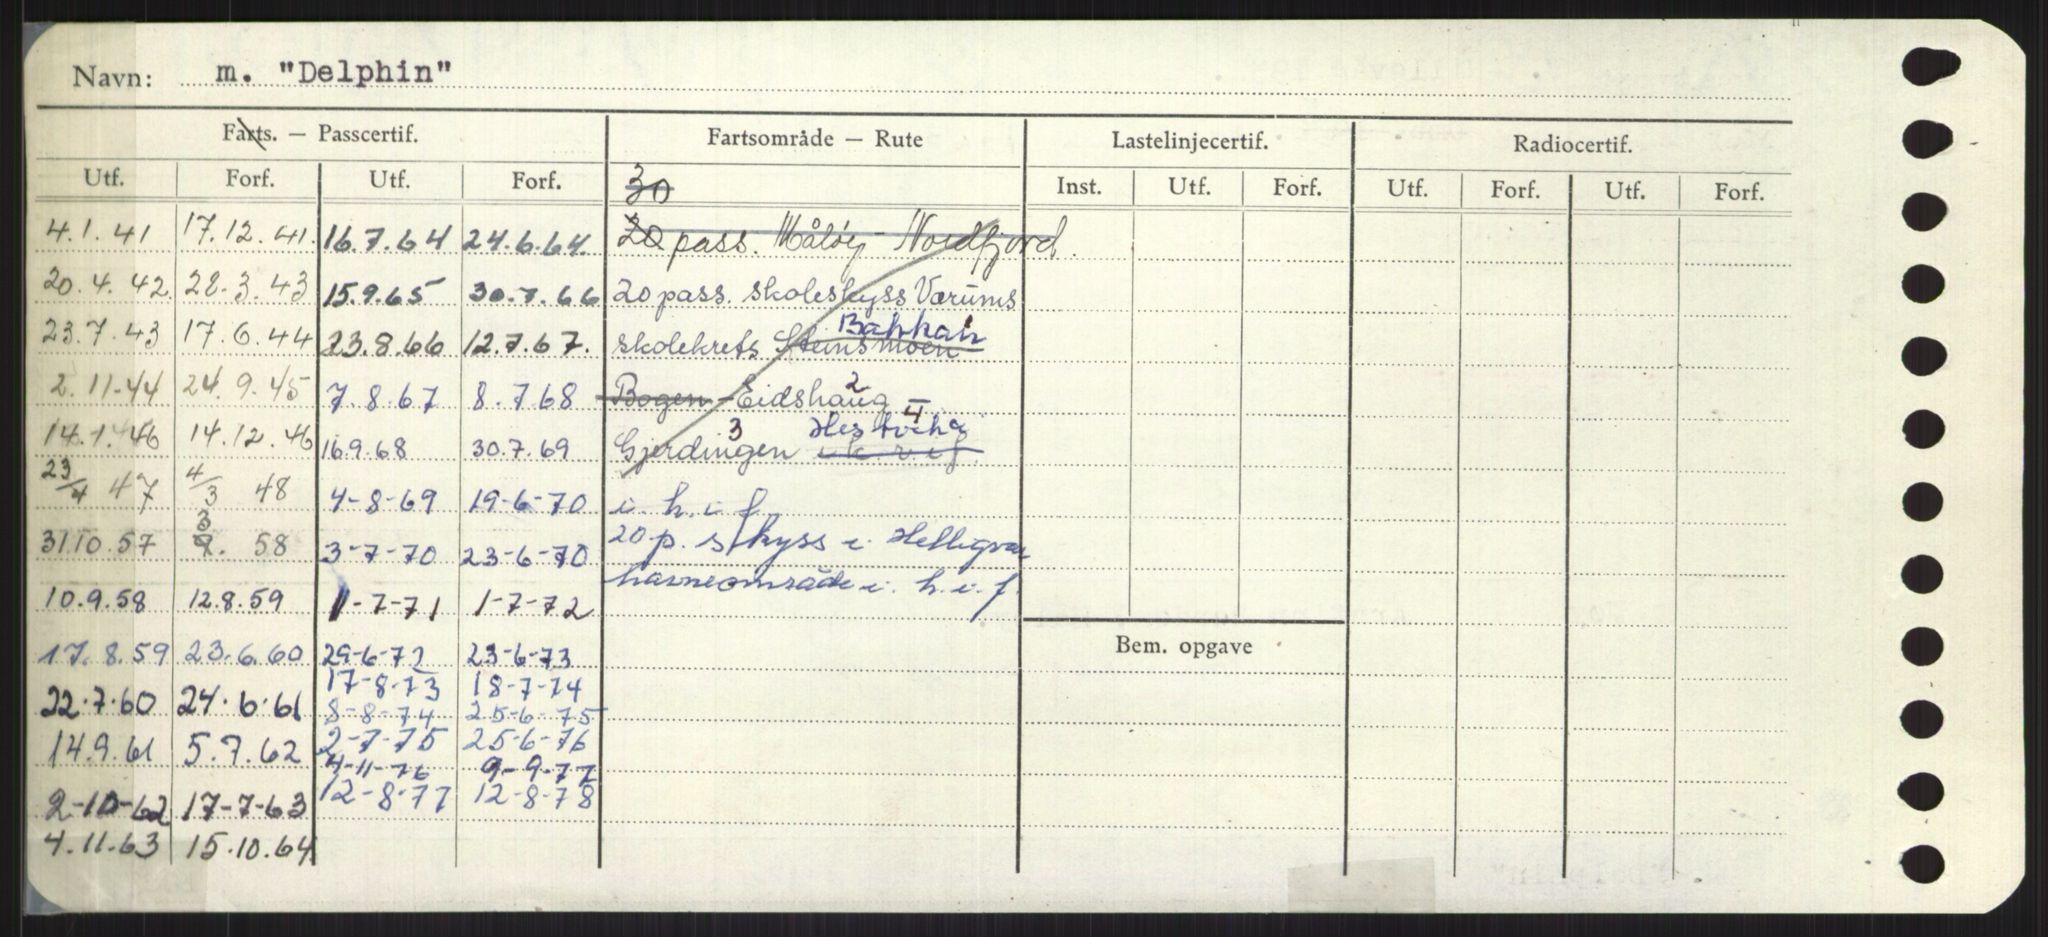 Navn: m. "Delphin"
Farts. — Passcertif. Fartsområde — Rute Lastelinjecertif. Radiocertif.
Utf. Forf. Utf. Forf. 30 Inst. Utf. Forf. Utf. Forf. Utf. Forf.
4.1.41 17.12.41. 16.7.64 24.6.64. 20 pass. Måløy - Nordfjord.
20.4.42. 28.3.43 15.9.65 30.7.66 20 pass. skoleskyss Værums
Bakkan
23.7.43 17.6.44 23.8.66 12.7.67. skolekrets Steinsmoen
2.11.44 24.9.45 7.8.67 8.768 Bogen - Eidshaug 2
3 Hestvika 4
14.1.46 14.12.46 16.9.68 30.7.69 Gjerdingen i k.v.i f.
23/4 47 4/3 48 4-8-69 19-6-70 i. h. i f.
31.10.57 3 9. 58 3-7-70 23-6-70 20 p. skyss i Helligvær
havneområde i. h. i. f.
10.9.58 12.8.59 1-7-71 1-7-72
17.8.59 23.6.60 29-6-72 23-6-73 Bem. opgave
17-8-73 18-7-74
22.7.60 24.6.61 8-8-74 25-6-75
14.9.61 5.7.62 2-7-75 25-6-76
4-11-76 9-9-77
2-10-62 17-7-63 12-8-77 12-8-78
4.11.63 15.10.64